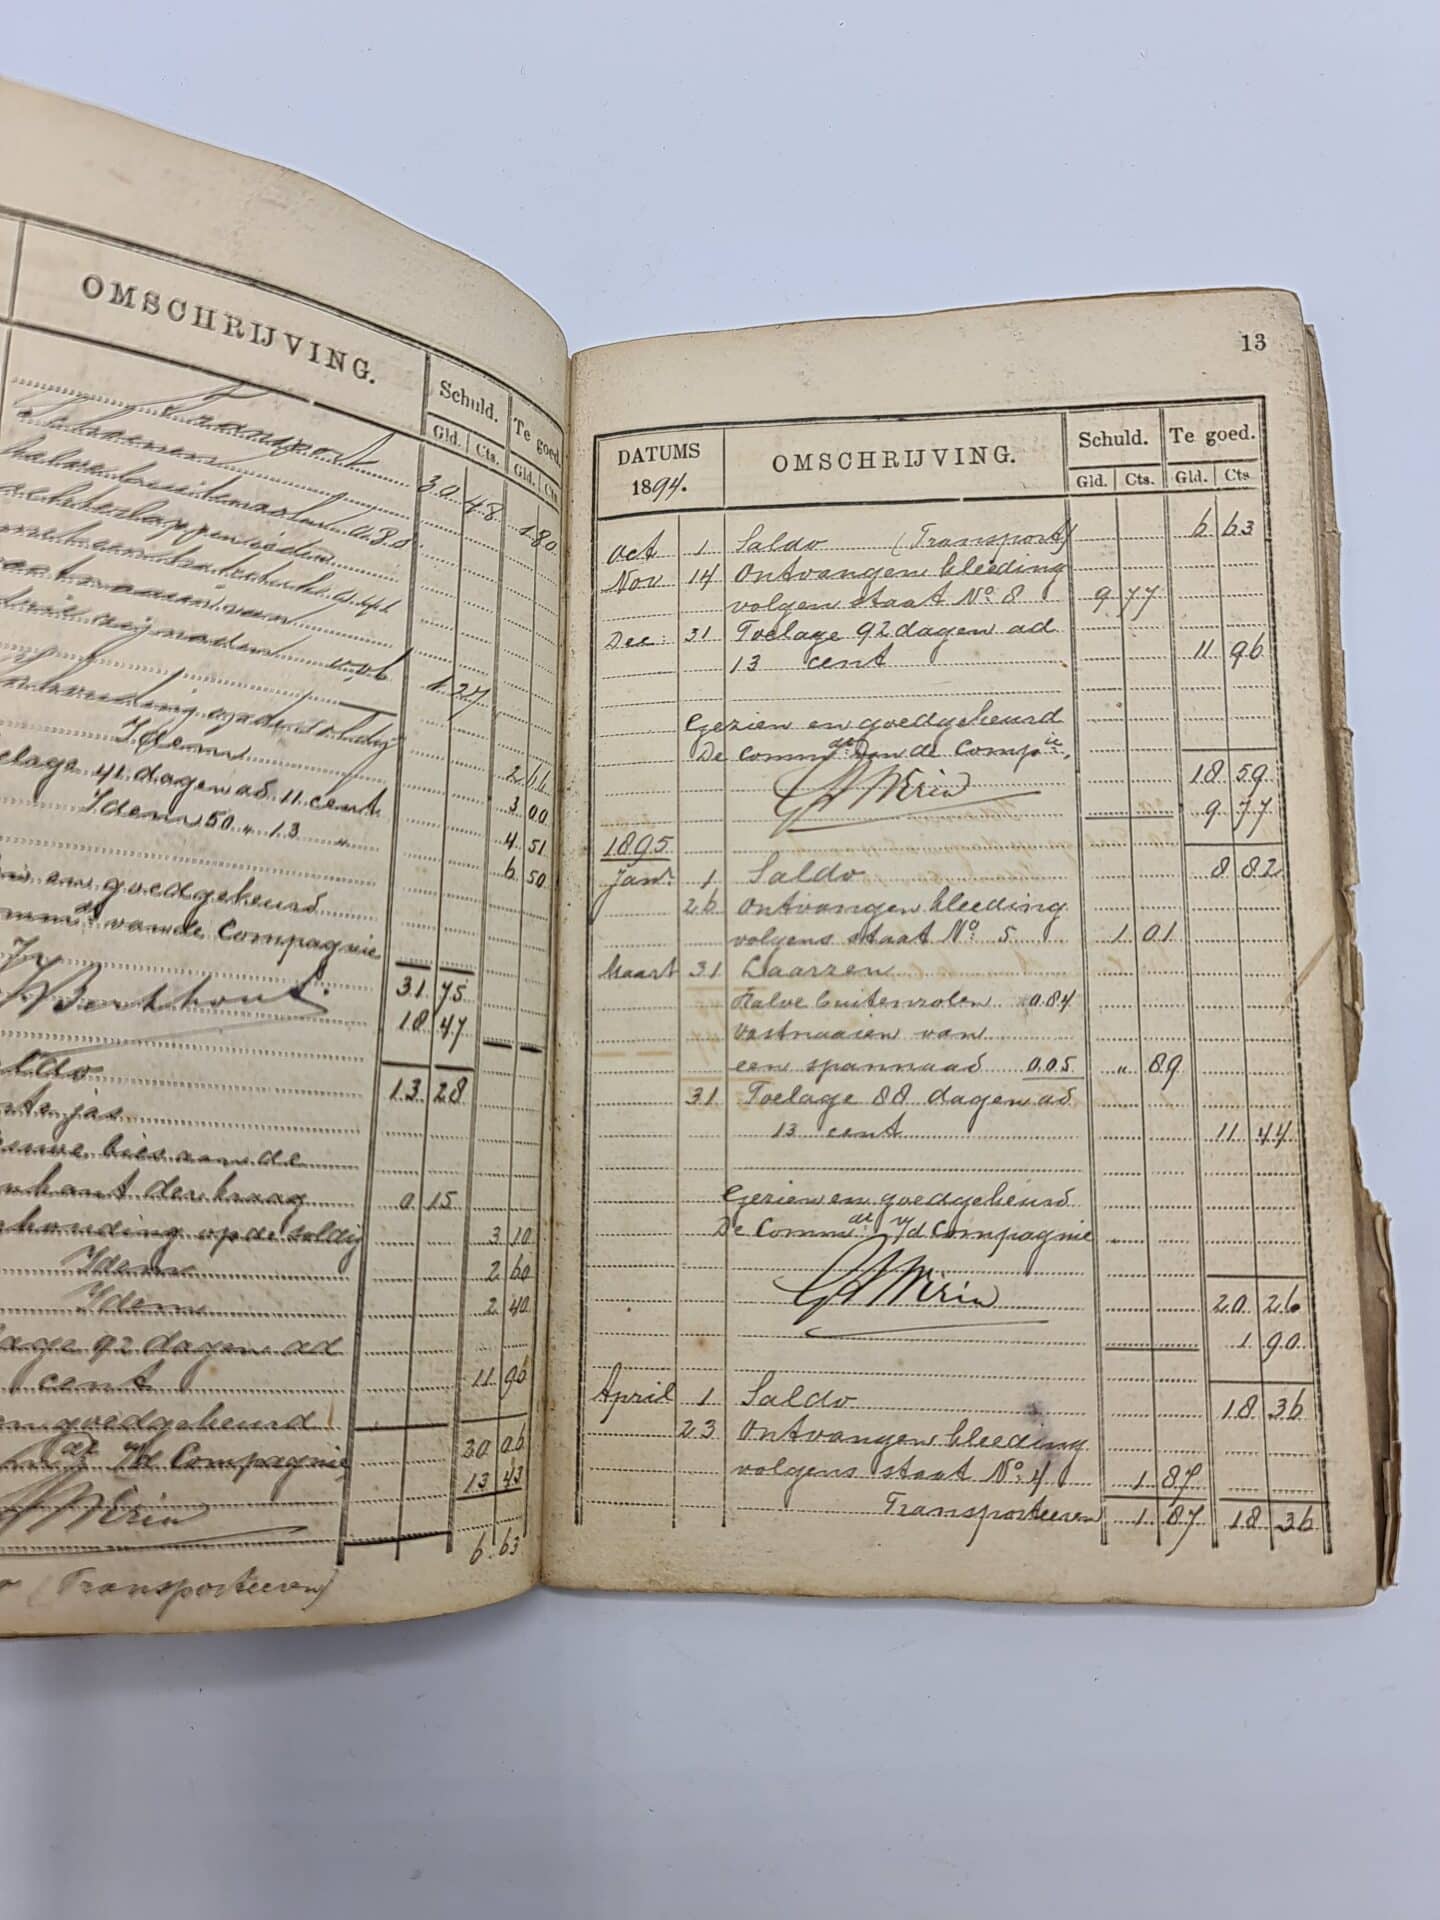 OMSCHRIJVING.
Schuld.
Te goed.
Gld. Cts. Gld. Cts.
Transport 30 48 1 80
Schoenen
halve
achterlappen
van
1 27
Inhouding op de soldij
Idem 2 66
3 00
41 dagen ad 11 cent 4 51
Idem 50 " 13 " 6 50
en goedgekeurd
van de Compagnie
31 75
18 47
13 28
jas
bies aan de
kant der kraag 0 15
op de soldij 3 10
Idem 2 60
Idem 2 40
92 dagen ad
cent 11 96
goedgekeurd
v/d Compagnie 30 06
13 43
6 63
(Transporteeren)
13
DATUMS
1894.
OMSCHRIJVING.
Schuld.
Te goed.
Gld. Cts. Gld. Cts
Oct 1 Saldo (Transport) 6 63
Nov 14 Ontvangen kleeding
volgens staat No. 8 9 77
Dec: 31 Toelage 92 dagen ad
13 cent 11 96
Gezien en goedgekeurd
De Commdt van de Compie.
18 59
9 77
1895
Janr. 1 Saldo 8 82
26 Ontvangen kleeding
volgens staat No. 5 1 01
Maart 31 Laarzen
Halve buitenzolen 0.84
vastnaaien van
een spannaad 0.05 " 89
31 Toelage 88 dagen ad
13 cent 11 44
Gezien en goedgekeurd
De Commdt v/d Compagnie
20 26
1 90
April 1 Saldo 18 36
23 Ontvangen kleeding
volgens staat No. 4 1 87
Transporteeren 1 87 18 36